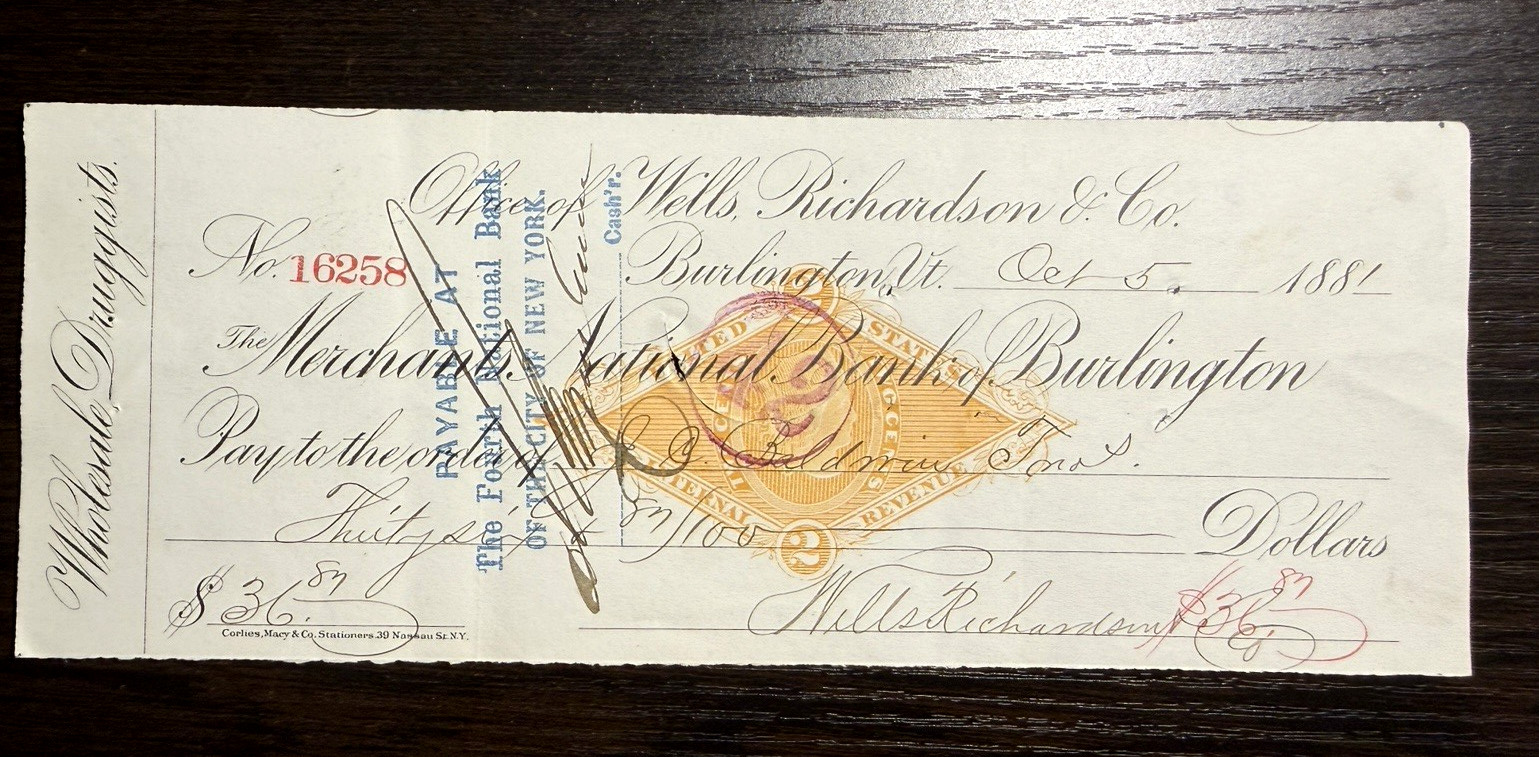 Wholesale Druggists.
Office of Wells, Richardson & Co.
No. 16258
Burlington, Vt. Oct 5. 1881
The Merchants National Bank of Burlington
Pay to the order of Baldwin
Thirty six 87/100 Dollars
$ 36.87
Wells Richardson & Co.
$36.87
Corlies, Macy & Co. Stationers. 39 Nassau St. N.Y.
PAYABLE AT
The Fourth National Bank
OF THE CITY OF NEW YORK.
Cash'r.
UNITED STATES
INTERNAL REVENUE
2
2